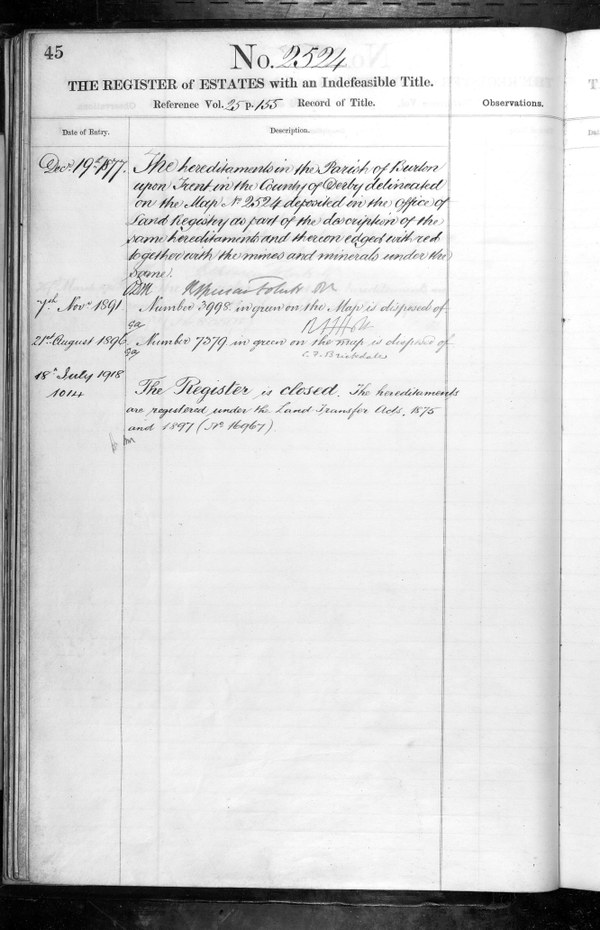 45
No. 2524
THE REGISTER of ESTATES with an Indefeasible Title.
Reference Vol. 25 p. 155 Record of Title.
Observations.
Date of Entry.
Description.
Decr. 19th 1877. The hereditaments in the Parish of Burton
upon Trent in the County of Derby delineated
on the Map No 2524 deposited in the Office of
Land Registry as part of the description of the
same hereditaments and thereon edged with red
together with the mines and minerals under the
same.
7th Novr 1891 Number 3998 in green on the Map is disposed of
21st August 1896 Number 7579 in green on the map is disposed of
C. F. Brickdale
18th July 1918
1014
The Register is closed. The hereditaments
are registered under the Land Transfer Acts, 1875
and 1897 (No 16967)